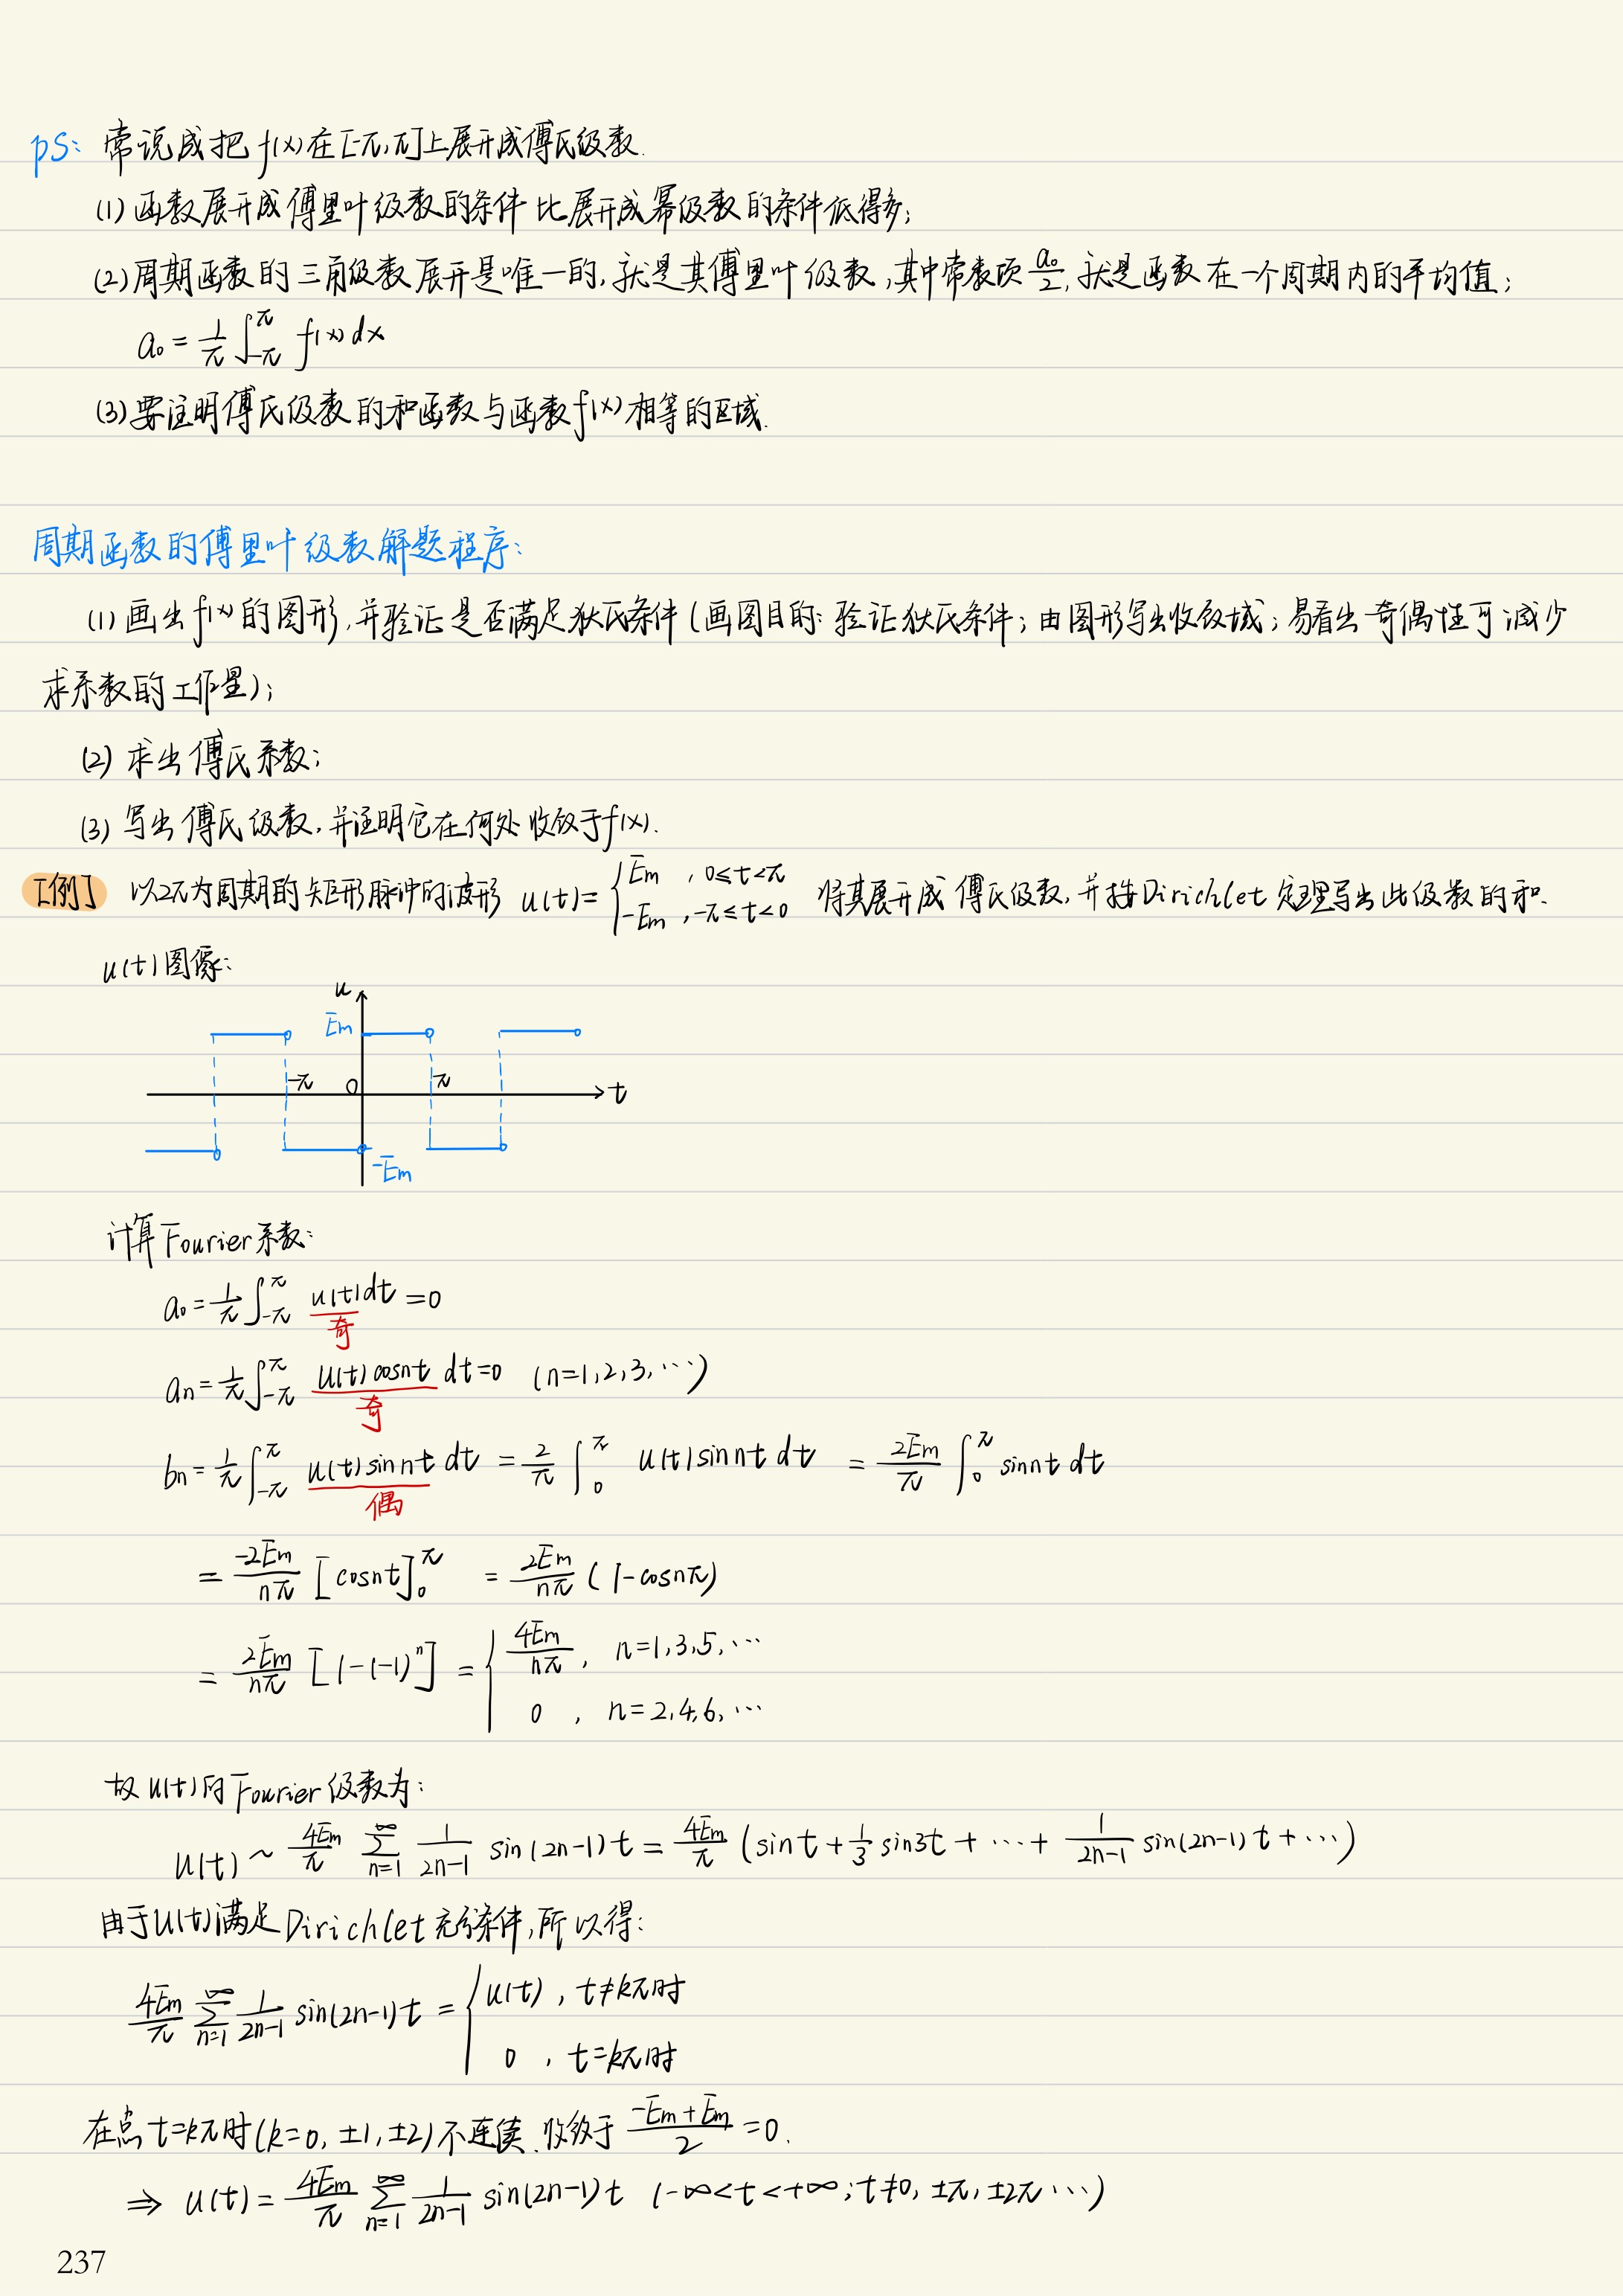 ps: 常说成把 f(x) 在 [-π,π] 上展开成傅氏级数.
(1) 函数展开成傅里叶级数的条件比展开成幂级数的条件低得多;
(2) 周期函数的三角级数展开是唯一的, 就是其傅里叶级数, 其中常数项 a₀/2, 就是函数在一个周期内的平均值;
a₀ = 1/π ∫_{-π}^{π} f(x) dx
(3) 要注明傅氏级数的和函数与函数 f(x) 相等的区域.
周期函数的傅里叶级数解题程序:
(1) 画出 f(x) 的图形, 并验证是否满足狄氏条件 (画图目的: 验证狄氏条件; 由图形写出收敛域; 易看出奇偶性可减少
求系数的工作量);
(2) 求出傅氏系数;
(3) 写出傅氏级数, 并注明它在何处收敛于 f(x).
[例] 以2π为周期的矩形脉冲的波形 u(t) = { Em , 0≤t<π ; -Em , -π≤t<0 将其展开成傅氏级数, 并按 Dirichlet 定理写出此级数的和.
u(t) 图像:
u
Em
-π 0 π t
-Em
计算 Fourier 系数:
a₀ = 1/π ∫_{-π}^{π} u(t) dt = 0
奇
an = 1/π ∫_{-π}^{π} u(t) cosnt dt = 0 (n=1,2,3,⋯)
奇
bn = 1/π ∫_{-π}^{π} u(t) sin nt dt = 2/π ∫_0^π u(t) sin nt dt = 2Em/π ∫_0^π sin nt dt
偶
= -2Em/nπ [cosnt]_0^π = 2Em/nπ (1-cosnπ)
= 2Em/nπ [1-(-1)^n] = { 4Em/nπ , n=1,3,5,⋯
0 , n=2,4,6,⋯
故 u(t) 的 Fourier 级数为:
u(t) ~ 4Em/π ∑_{n=1}^∞ 1/(2n-1) sin(2n-1)t = 4Em/π (sint + 1/3 sin3t + ⋯ + 1/(2n-1) sin(2n-1)t + ⋯)
由于 u(t) 满足 Dirichlet 充分条件, 所以得:
4Em/π ∑_{n=1}^∞ 1/(2n-1) sin(2n-1)t = { u(t) , t≠kπ时
0 , t=kπ时
在点 t=kπ时 (k=0, ±1, ±2) 不连续, 收敛于 (-Em+Em)/2 = 0.
⇒ u(t) = 4Em/π ∑_{n=1}^∞ 1/(2n-1) sin(2n-1)t (-∞<t<+∞; t≠0, ±π, ±2π⋯)
237